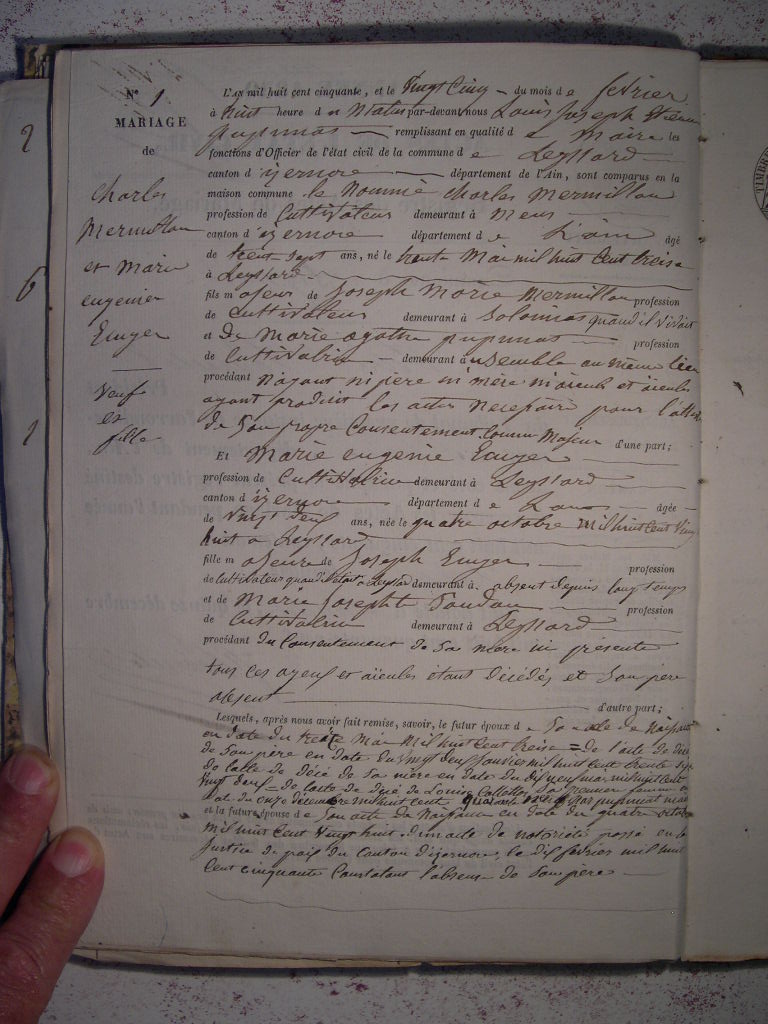 N° 1
MARIAGE
de
Charles
Mermillon
et Marie
eugenie
Emyer
Veuf
et
fille
L'AN mil huit cent cinquante, et le Vingt Cinq du mois de fevrier
à huit heure du Matin par-devant nous Louis Joseph
pupunat remplissant en qualité de Maire les
fonctions d'Officier de l'état civil de la commune de Leyssard
canton d'izernore département de l'Ain, sont comparus en la
maison commune le Nommé Charles Mermillon
profession de Cultivateur demeurant à
canton d'izernore département de L'ain âgé
de trente sept ans, né le trente Mai mil huit Cent treise
à Leyssard
fils majeur de Joseph Marie Mermillon profession
de Cultivateur demeurant à Solomiat quand il vivait
et de Marie agathe pupunat profession
de Cultivatrice demeurant à ensemble au même lieu
procédant N'ayant ni père ni mère ni aïeuls et aïeules
ayant produit les actes Necessaire pour
de Son propre Consentement Comme Majeur d'une part;
Et Marie eugenie Emyer
profession de Cultivatrice demeurant à Leyssard
canton d'izernore département de L'ain âgée
de Vingt deux ans, née le quatre octobre mil huit Cent Vingt
huit a Leyssard
fille majeure de Joseph Emyer profession
de Cultivateur quand il était a Leyssard demeurant à absent Depuis long temps
et de Marie Josephte profession
de Cultivatrice demeurant à Leyssard
procédant du Consentement de Sa mere ici présente
tous ces ayeuls et aïeules étant décédés et Son père
absent d'autre part;
Lesquels, après nous avoir fait remise, savoir, le futur époux de Son acte de Naissance
en date du treise Mai Mil huit Cent treise = de l'acte de décé
de Son père en date du Vingt deux Janvier mil huit Cent trente sept
de l'acte de décé de Sa mère en date du dix neuf mai mil huit Cent
Vingt deuf = de l'acte de décé de Louise Colletton Sa premier femme en
date du onze décembre mil huit cent quarante
et la future épouse de Son acte de Naissance en date du quatre octobre
mil huit Cent Vingt huit. d'un acte de notoriété passé en la
Justice de paix du Canton d'izernore, le dix fevrier mil huit
Cent cinquante Constatant l'absence de Son père
2
6
1
TIMBRE